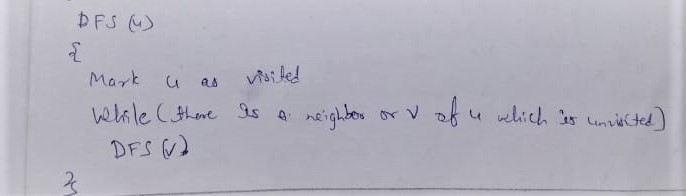 DFS (u)
{
Mark u as visited
While (there is a neighbor or v of u which is unvisited)
DFS (v)
}